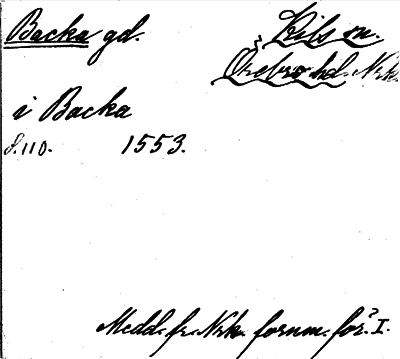 Backa gd.
Kils sn.
Örebro hd. Nrk.
i Backa
s. 110. 1553.
Medd. fr. Nrk. fornm. för. I.